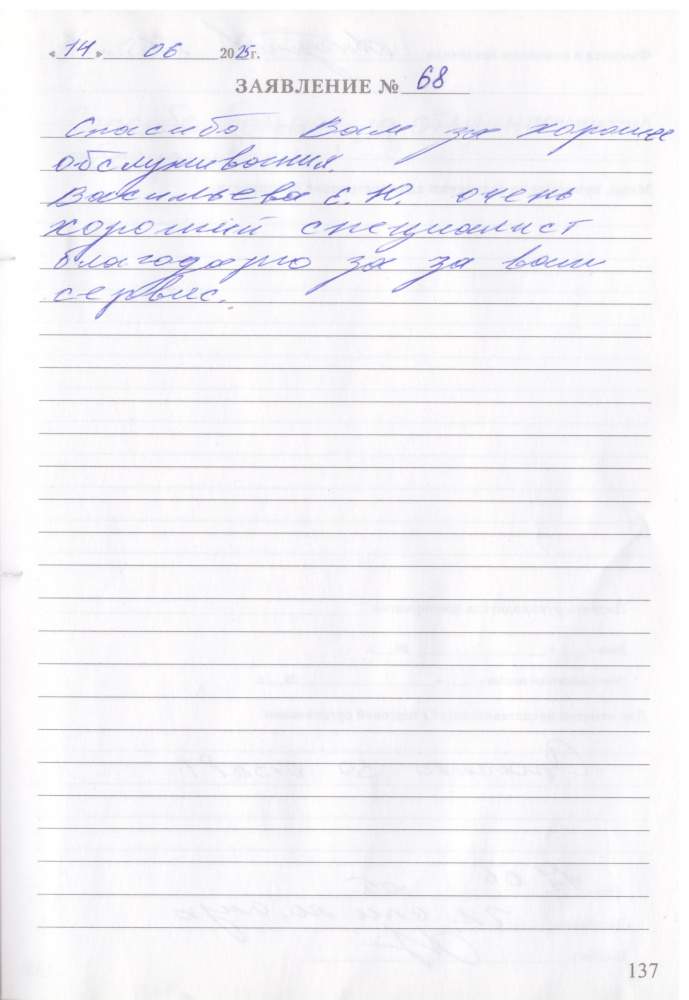 « 14 » 06 2025г.
ЗАЯВЛЕНИЕ № 68
Спасибо Вам за хорошее
обслуживания.
Васильева Е. Ю. очень
хороший специалист
благодарю за за ваш
сервис.
137